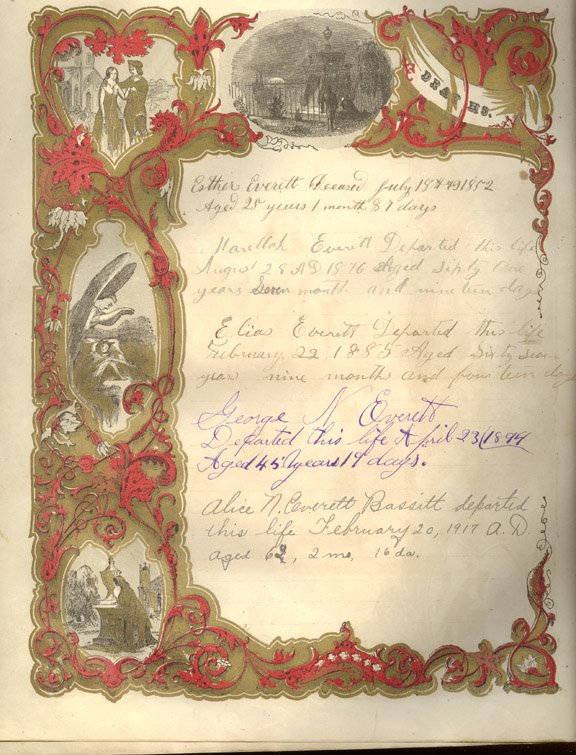 DEATHS.
Esther Everett Deceased July 18 1852
Aged 25 years 1 month & 7 days
Everett Departed this life
August 28 AD 1876 Aged Sixty One
years Seven month and nineteen days
Elias Everett Departed this life
February 22 1885 Aged Sixty
year nine month and fourteen days
George N Everett
Departed this life April 23/1899
Aged 45 years 19 days.
Alice N. Everett Bassitt departed
this life February 20, 1917 A.D.
aged 62, 2 mo, 16 da.